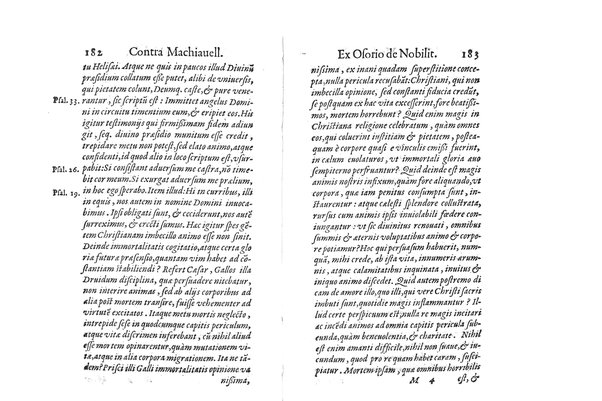 182 Contra Machiauell.
tu Helisai. Atque ne quis in paucos illud Diuinũ
præsidium collatum esse putet, alibi de vniuersis,
qui pietatem colunt, Deumq. caste, & pure vene-
Psal. 33. rantur, sic scriptũ est: Immittet angelus Domi
ni in circuitu timentium eum, & eripiet eos. Hu
ic igitur testimonijs qui firmißimam fidem adiun
git, seq. diuino præsidio munitum esse credit,
trepidare metu non potest, sed elato animo, atque
confidenti, id quod alio in loco scriptum est, vsur-
Psal. 26. pabit: Si consistant aduersum me castra, nõ time-
bit cor meum. Si exurgat aduersum me prælium,
Psal. 19. in hoc ego sperabo. Item illud: Hi in curribus, illi
in equis, nos autem in nomine Domini inuoca-
bimus. Ipsi obligati sunt, & ceciderunt, nos autẽ
surreximus, & erecti sumus. Hac igitur spes gẽ-
tem Christianam imbecillo animo esse non sinit.
Deinde immortalitatis cogitatio, atque certa glo
riæ futuræ præsensio, quantam vim habent ad co
stantiam stabiliendi? Refert Cæsar, Gallos illa
Druidum disciplina, quæ persuadere nitebatur,
non interire animas, sed ab alijs corporibus ad
alia post mortem transire, fuisse vehementer ad
virtutẽ excitatos. Itaque mortis metu neglecto,
intrepide sese in quodcumque capitis periculum,
atque vitæ discrimen inferebant, cũ nihil aliud
esse mortem opinarentur, quàm mutationem vi-
tæ, atque in alia corpora migrationem. Ita ne tã-
dem? Prisci illi Galli immortalitatis opinione va
nißima,
Ex Osorio de Nobilit. 183
nißima, ex inani quadam superstitione concep-
ta, nulla pericula recusabãt: Christiani, qui non
imbecilla opinione, sed constanti fiducia credũt,
se postquam ex hac vita excesserint, fore beatißi-
mos, mortem horrebunt? Quid enim magis in
Christiana religione celebratum, quàm omnes
eos, qui coluerint iustitiam & pietatem, postea-
quam è corpore quasi è vinculis emißi fuerint,
in cælum euolaturos, vt immortali gloria æuo
sempiterno perfruantur? Quid deinde est magis
animis nostris infixum, quàm fore aliquando, vt
corpora, quæ iam penitus consumpta sunt, insta-
urentur: atque cælesti splendore collustrata,
rursus cum animis ipsis inuiolabili fœdere coniun-
gantur: vt sic diuinitus renouati, omnibus
summis & æternis voluptatibus animo & corpo-
re potiamur? Hoc qui persuasum habuerit, num-
quã, mihi crede, ab ista vita, innumeris erumnis,
atque calamitatibus inquinata, inuitus &
iniquo animo discedet. Quid autem postremo di
cam de amore illo, quo illi, qui vere Christi sacris
imbuti sunt, quotidie magis inflammantur? Il
lud certe perspicuum est, nulla re magis incitari
ac incẽdi animos ad omnia capitis pericula sub-
eunda, quàm beneuolentia, & charitate. Nihil
est enim amanti difficile, nihil non suaue, & iu-
cundum, quod pro re quam habet caram, susci-
piatur. Mortem ipsam, quæ omnibus horribilis
M 4 est, &